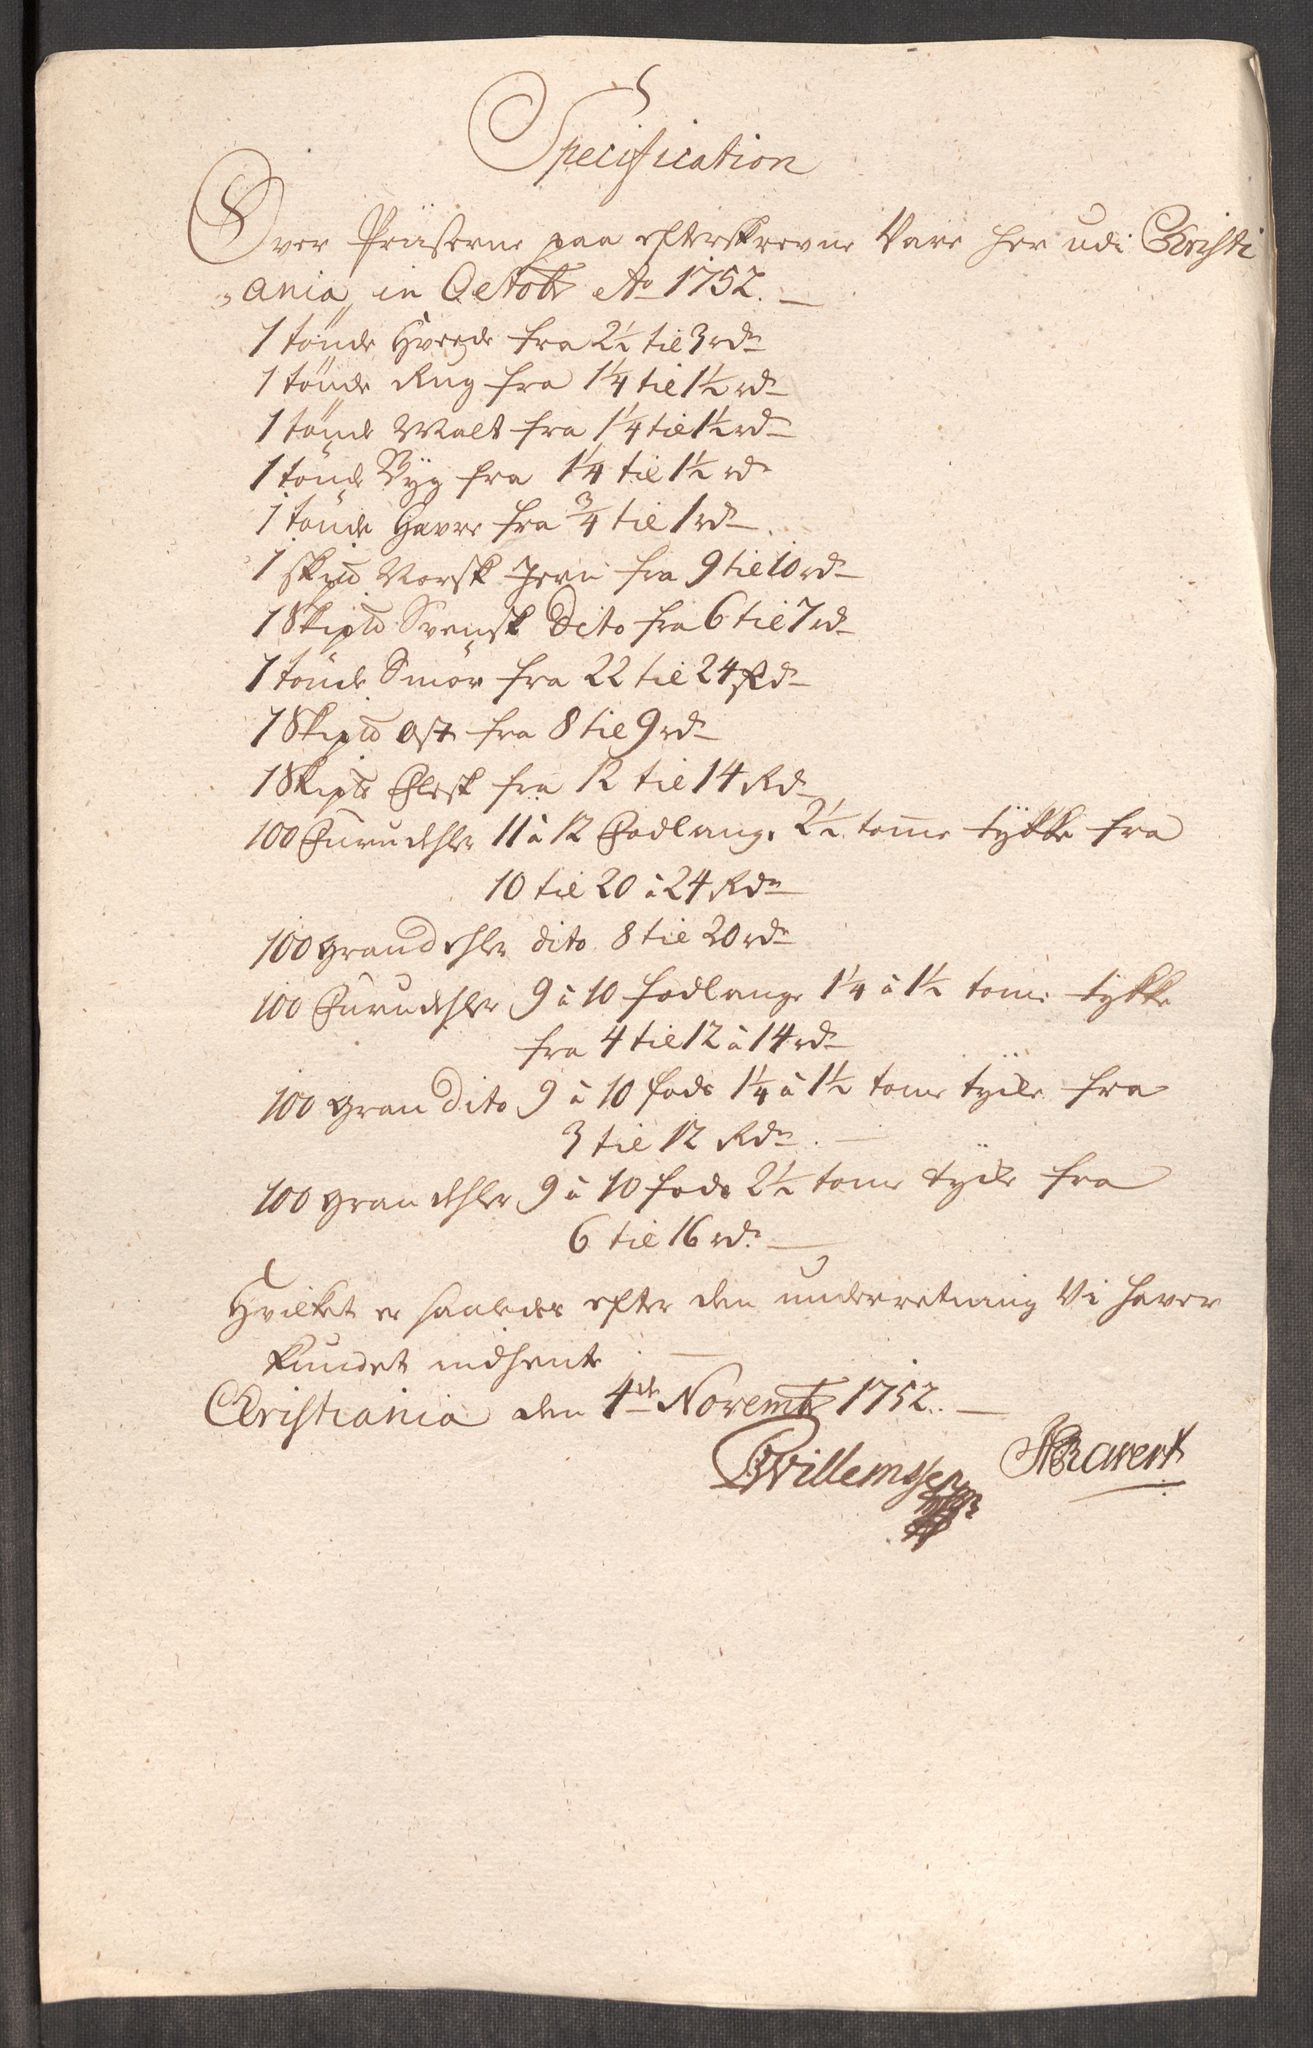 Specification
Over Prüserne paa efterskrevne Vare her udi Christi
„ania, in Octobr Ao 1752.
1 tönde Hvede fra 2½ til 3 rdr
1 tönde Rug fra 1¼ til 1½ rdr
1 tönde Malt fra 1¼ til 1½ rdr
1 tönde Byg fra 1¼ til 1½ rdr
1 tönde Havre fra ¾ til 1 rdr
1 skpd Norsk Jern fra 9 til 10 rdr
1 Skipd Svensk Dito fra 6 til 7 rdr
1 tönde Smör fra 22 til 24 Rdr
1 Skipd Ost fra 8 til 9 rdr
1 Skipd Flesk fra 12 til 14 Rdr
100 Furudehler 11 à 12 Fodlange 2½ tomme tykke fra
10 til 20 à 24 Rdr
100 grandehler dito 8 til 20 rdr
100 Furudehler 9 à 10 fodlange 1¼ à 1½ tome tykke
fra 4 til 12 à 14 rdr
100 gran Dito 9 à 10 fods 1¼ à 1½ tome tycke fra
3 til 12 Rdr.
100 grandehler 9 à 10 fods 2½ tome tycke fra
6 til 16 rdr.
Hvilket er saaledes efter den underretning Vi haver
kundet indhente
Christiania den 4de Novembr 1752.
Willemsen Ravert